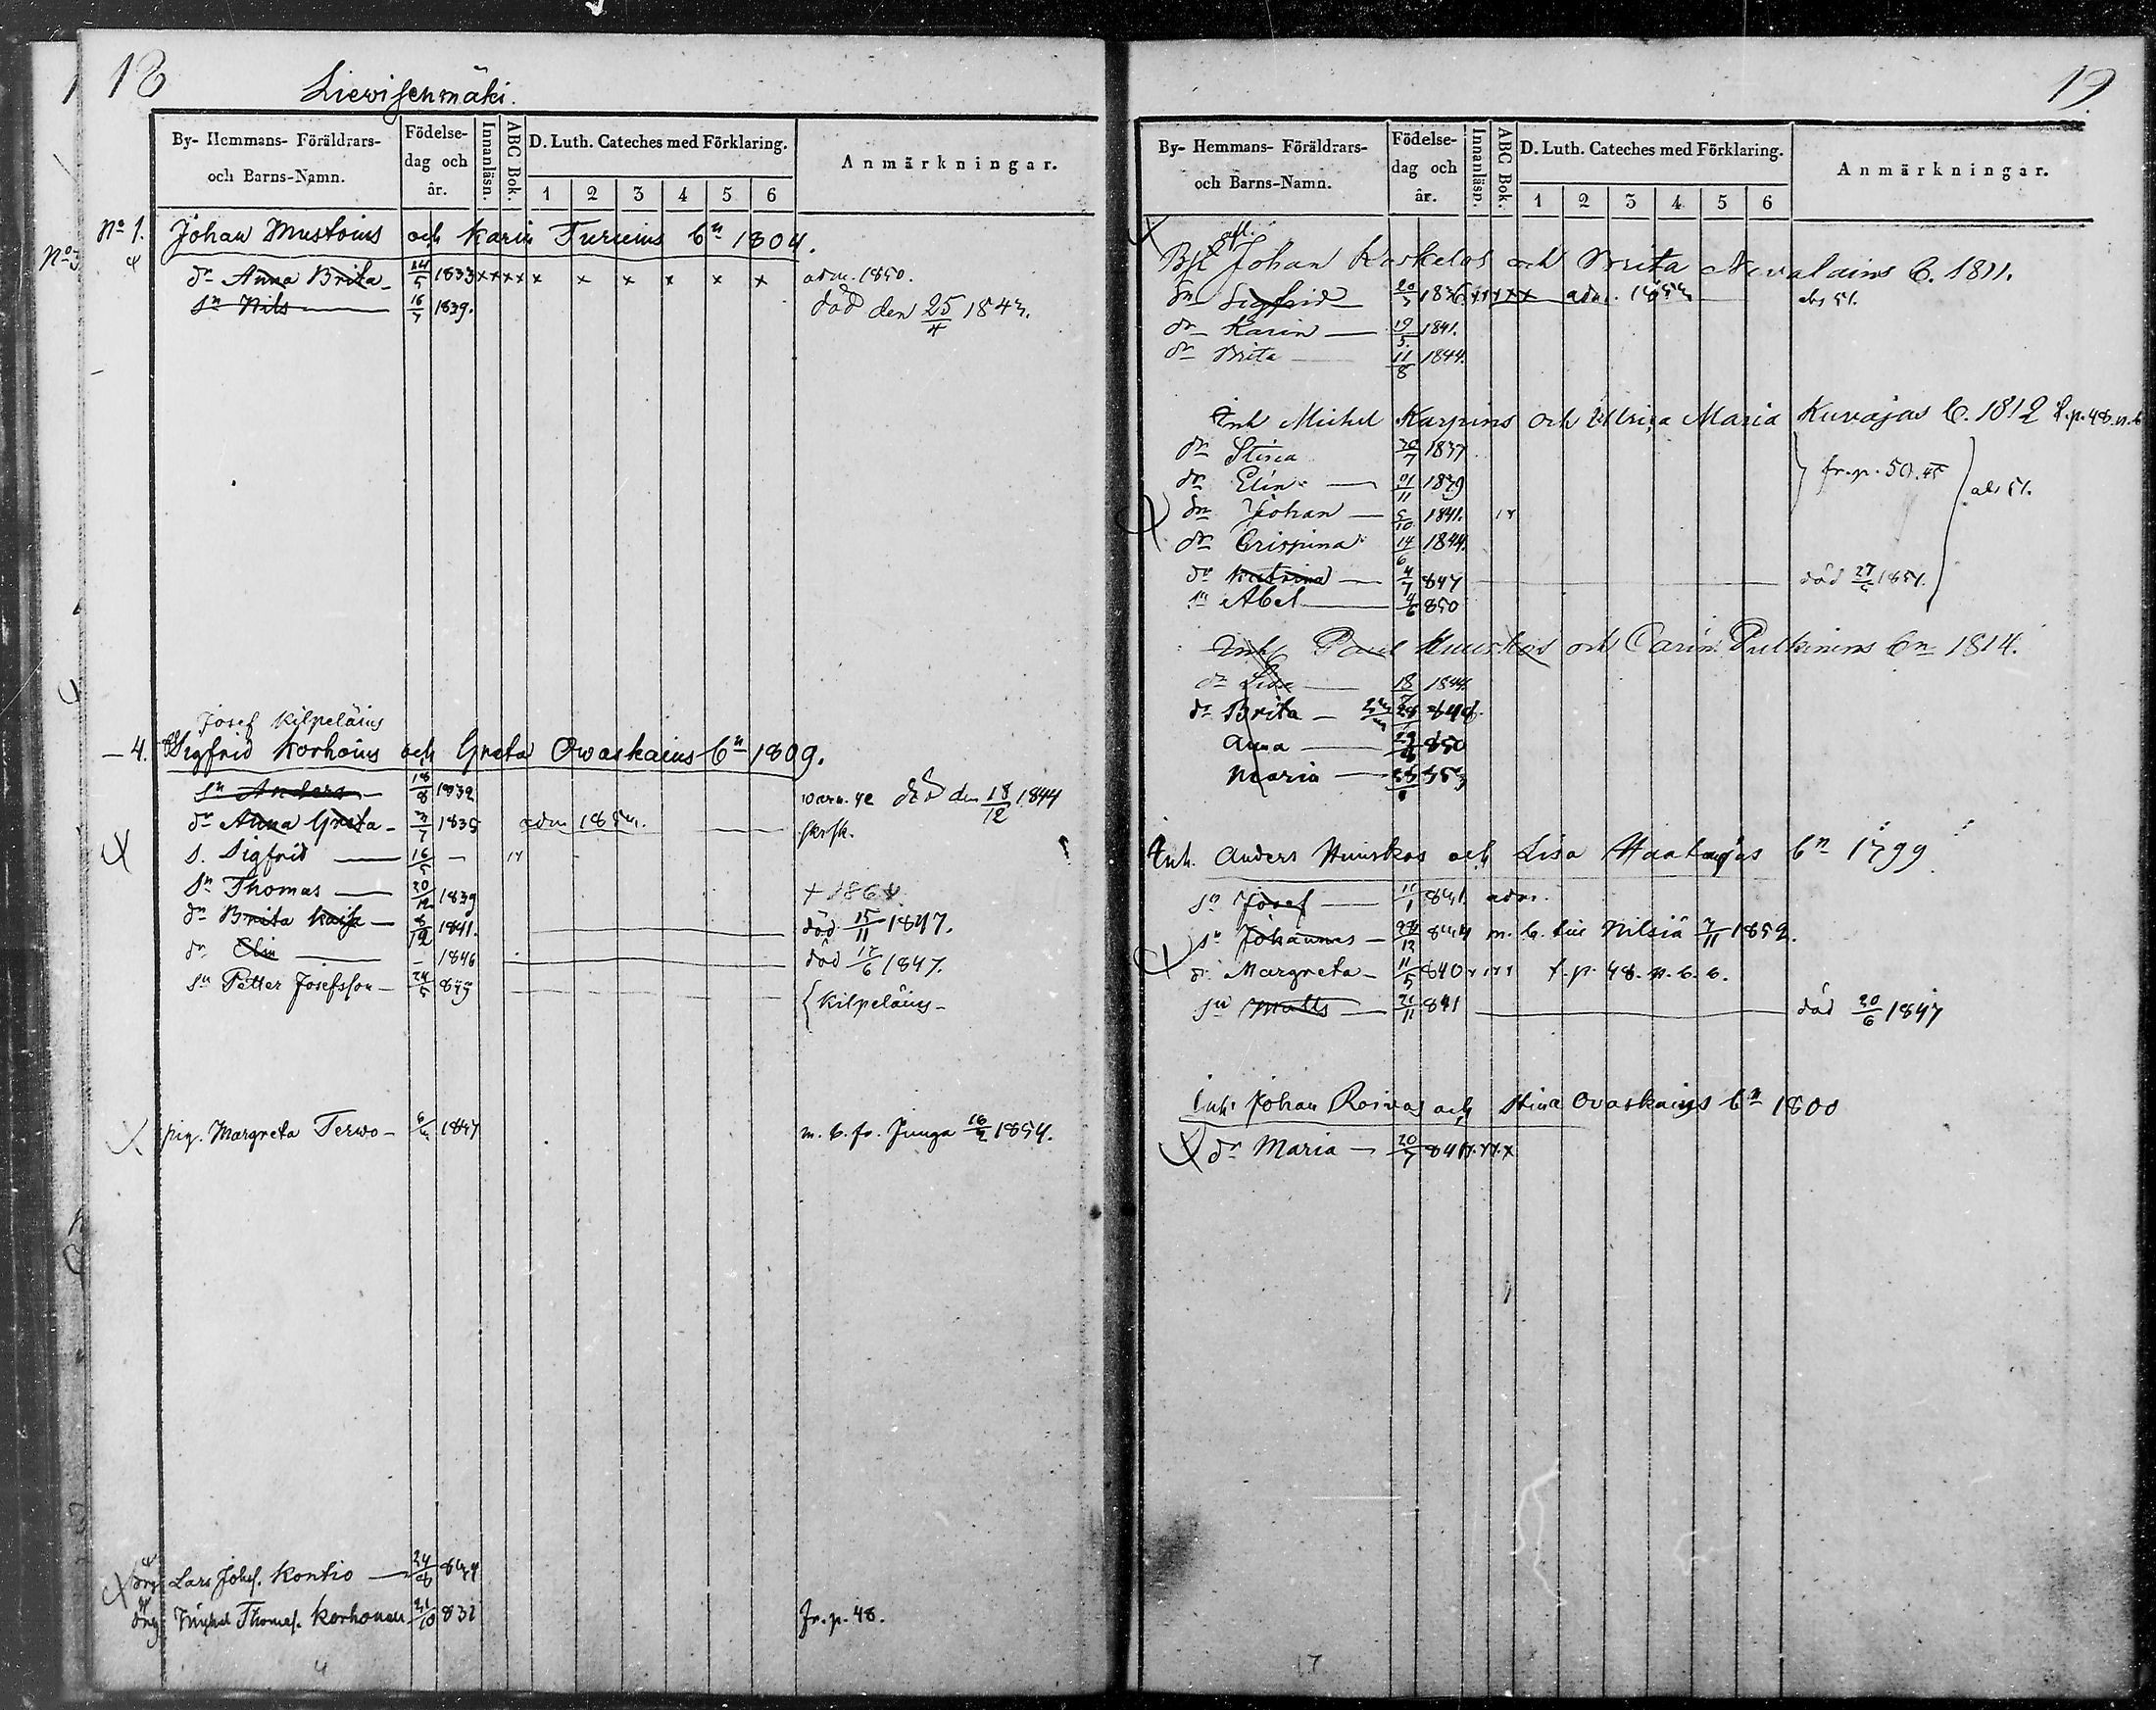 18
Lievisenmäki.
By- Hemmans- Föräldrars- och Barns-Namn.
Födelse- dag och år.
Innanläsn.
ABC Bok.
D. Luth. Cateches med Förklaring.
1 2 3 4 5 6
Anmärkningar.
No 1. Johan Mustoins och Karin Turuins bn 1804.
dr Anna Brita 24/5 1833 x x x x x x x x x x adm. 1850.
sn Nils 16/7 1839. död den 25/4 1843.
Josef Kilpeläins
4. Sigfrid Korhoins och Greta Owaskains bn 1809.
sn Anders 18/8 1832 död den 18/12 1844
dr Anna Greta 3/7 1835 adm
s. Sigfrid 16/5 —
sn Thomas 20/12 1839 + 186
dr Brita Kaisa 8/12 1841. död 15/11 1847.
dr Elin - 1846 död 17/6 1847.
sn Petter Josefsson 24/5 849 { Kilpeläins
pig. Margreta Terwo 1847 m. b. fr. 1854.
drg Lars Johs. Kontio 24/ 844
drg Thomas. Korhonen 21/10 832 fr. p. 48.
4
19
By- Hemmans- Föräldrars- och Barns-Namn.
Födelse- dag och år.
Innanläsn.
ABC Bok.
D. Luth. Cateches med Förklaring.
1 2 3 4 5 6
Anmärkningar.
Johan Koskelos och Brita Nevalains b. 1811.
sn Sigfrid 20/ 1836 adm. abs 51.
dr Karin 19/5. 1841.
dr Brita 11/8 1844.
Inh Michel Karpins och Ulrica Maria Kuvajas b. 1812
dr Stina 20/7 1837
dr Elin 1839 fr. p. 50. abs 51.
sn Johan 5/10 1841.
dr Crispina 14/6 1844.
dr Katrina 4/7 847 död 27/5 1851.
sn Abel 4/6 850
Inh Paul Huuskos och Carin Pulkinens bn 1814.
dr Lisa 18/ 1844.
dr Brita 848
Anna 850
Maria 853
Inh. Anders Huuskos och Lisa Haatajas bn 1799
sn Josef 841 adm.
sn Johannes 844 m. b. till Nilsiä 7/11 1852.
d. Margreta 11/5 840 f. p. 48. n. b. b.
sn Matts 21/11 841 död 20/6 1847
Inh. Johan Roivas och Stina Ovaskains bn 1800
dr Maria 20/7 841
17